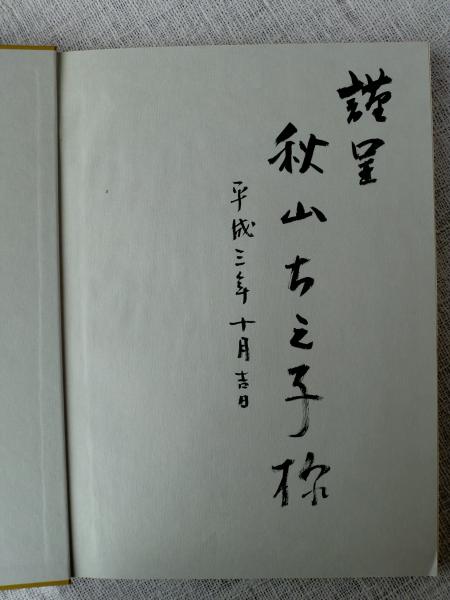 謹呈
秋山ちえ子様
平成三年十月吉日